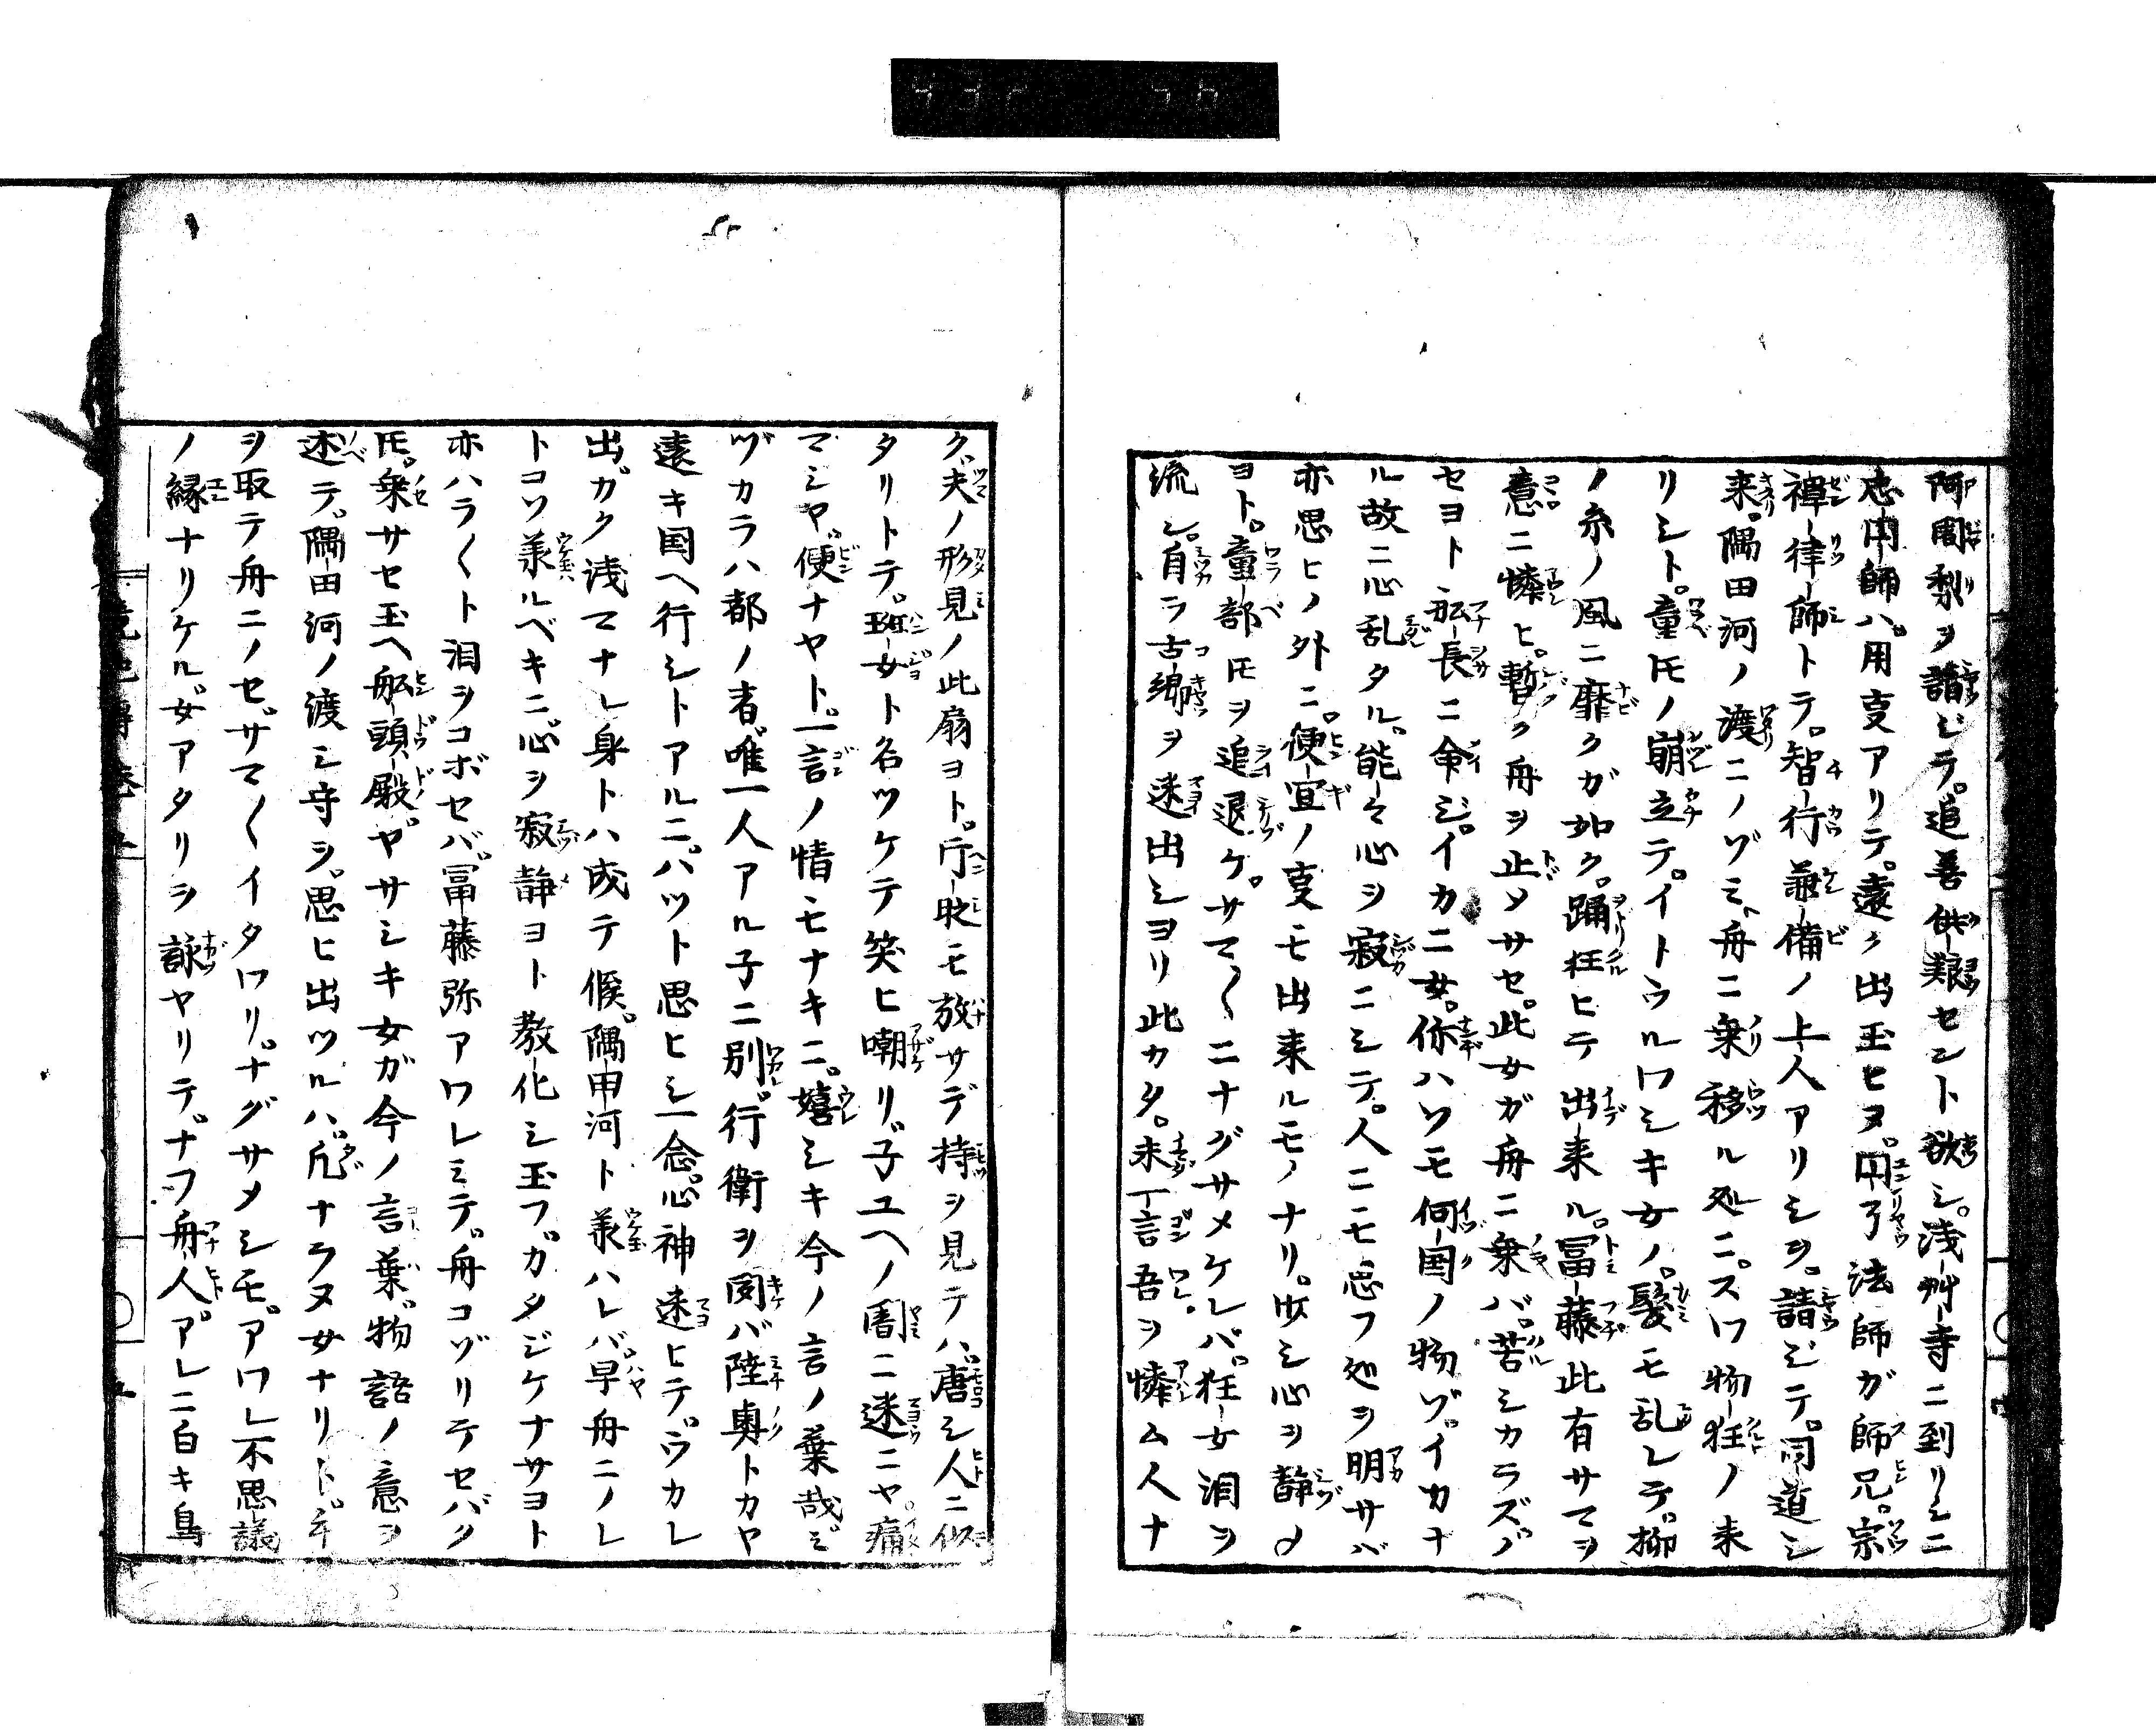 阿闍梨ヲ請ジラ。追善供粮セント欲シ。浅艸寺ニ到リシニ
忠円師ハ。用叓アリテ。遠ク出玉ヒヌ。円了法師ガ師兄。宗
禅律師トテ。智行兼備ノ上人アリシヲ。請ジテ。同道シ
来。隅田河ノ渡ニノゾミ、舟ニ乗移ル処ニ。スワ物狂ノ来
リシト。童モノ崩立テ。イトウルワシキ女ノ。髪モ乱レテ。柳
ノ糸ノ風ニ靡クガ如ク。踊狂ヒテ出来ル。冨藤此有サマヲ
意ニ憐ヒ。暫ク舟ヲ止メサセ。此女ガ舟ニ乗バ。苦シカラズバ
セヨト舩長ニ命ジ。イカニ女。你ハソモ何国ノ物ゾ。イカナ
ル故ニ心乱タル。能々心ヲ寂ニシテ。人ニモ思フ処ヲ明サバ
亦思ヒノ外ニ。便宜ノ叓モ出来ルモノナリ。少シ心ヲ静メ
ヨト。童部モヲ追退ケ。サマ〱ニナグサメケレバ。狂女泪ヲ
流シ。自ラ古郷ヲ迷出シヨリ此カタ。未一言吾ヲ憐ム人ナ
ク。夫ノ形見ノ此扇ヨト。片時モ放サデ持ヲ見テハ。唐シ人ニ似
タリトテ。班女ト名ツケテ笑ヒ嘲リ。子ユヘノ闇ニ迷ニヤ。痛
マシヤ。便ナヤト。一言ノ情モナキニ。嬉シキ今ノ言ノ葉哉。ミ
ヅカラハ都ノ者。唯一人アル子ニ別。行衛ヲ聞バ陸奥トカヤ
遠キ国ヘ行シトアルニ。ハツト思ヒシ一念。心神迷ヒテ。ウカレ
出ガク浅マナレ身トハ成テ候。隅田河ト羕ハレバ。早舟ニノレ
トコソ羕ルベキニ。心ヲ寂静ヨト教化シ玉フ。カタジケナサヨト
亦ハラ〱ト泪ヲコボセバ。冨藤弥アワレミテ。舟コゾリテセバク
モ。乗サセ玉ヘ舩頭殿。ヤサシキ女ガ今ノ言葉。物語ノ意ヲ
述テ。隅田河ノ渡シ守ヲ。思ヒ出ツルハ。凡ナラヌ女ナリト。手
ヲ取テ舟ニノセ。サマ〱イタワリ。ナグサメシモ。アワレ不思議
ノ縁ナリケル。女アタリヲ詠ヤリテ。ナフ舟人。アレニ白キ鳥